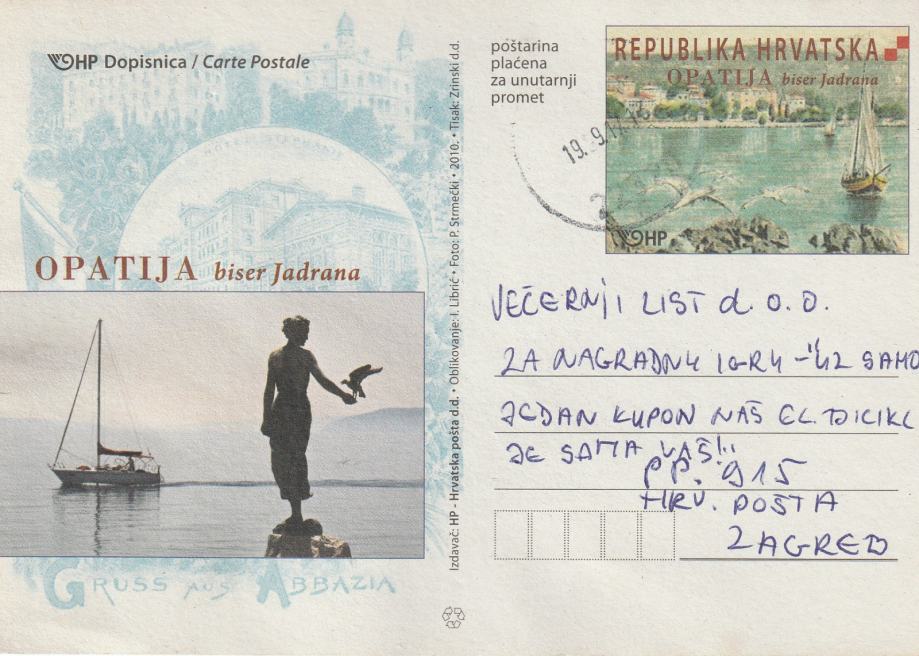 HP Dopisnica / Carte Postale
OPATIJA biser Jadrana
GRUSS AUS ABBAZIA
Izdavač: HP - Hrvatska pošta d.d. • Oblikovanje: I. Librić • Foto: P. Strmečki • 2010. • Tisak: Zrinski d.d.
poštarina
plaćena
za unutarnji
promet
REPUBLIKA HRVATSKA
OPATIJA biser Jadrana
HP
VEČERNJI LIST d.o.o.
ZA NAGRADNU IGRU - "UZ SAMO
JEDAN KUPON NAŠ EL. BICIKL
JE SAMO VAŠ!"
PP. 915
HRV. POŠTA
ZAGREB